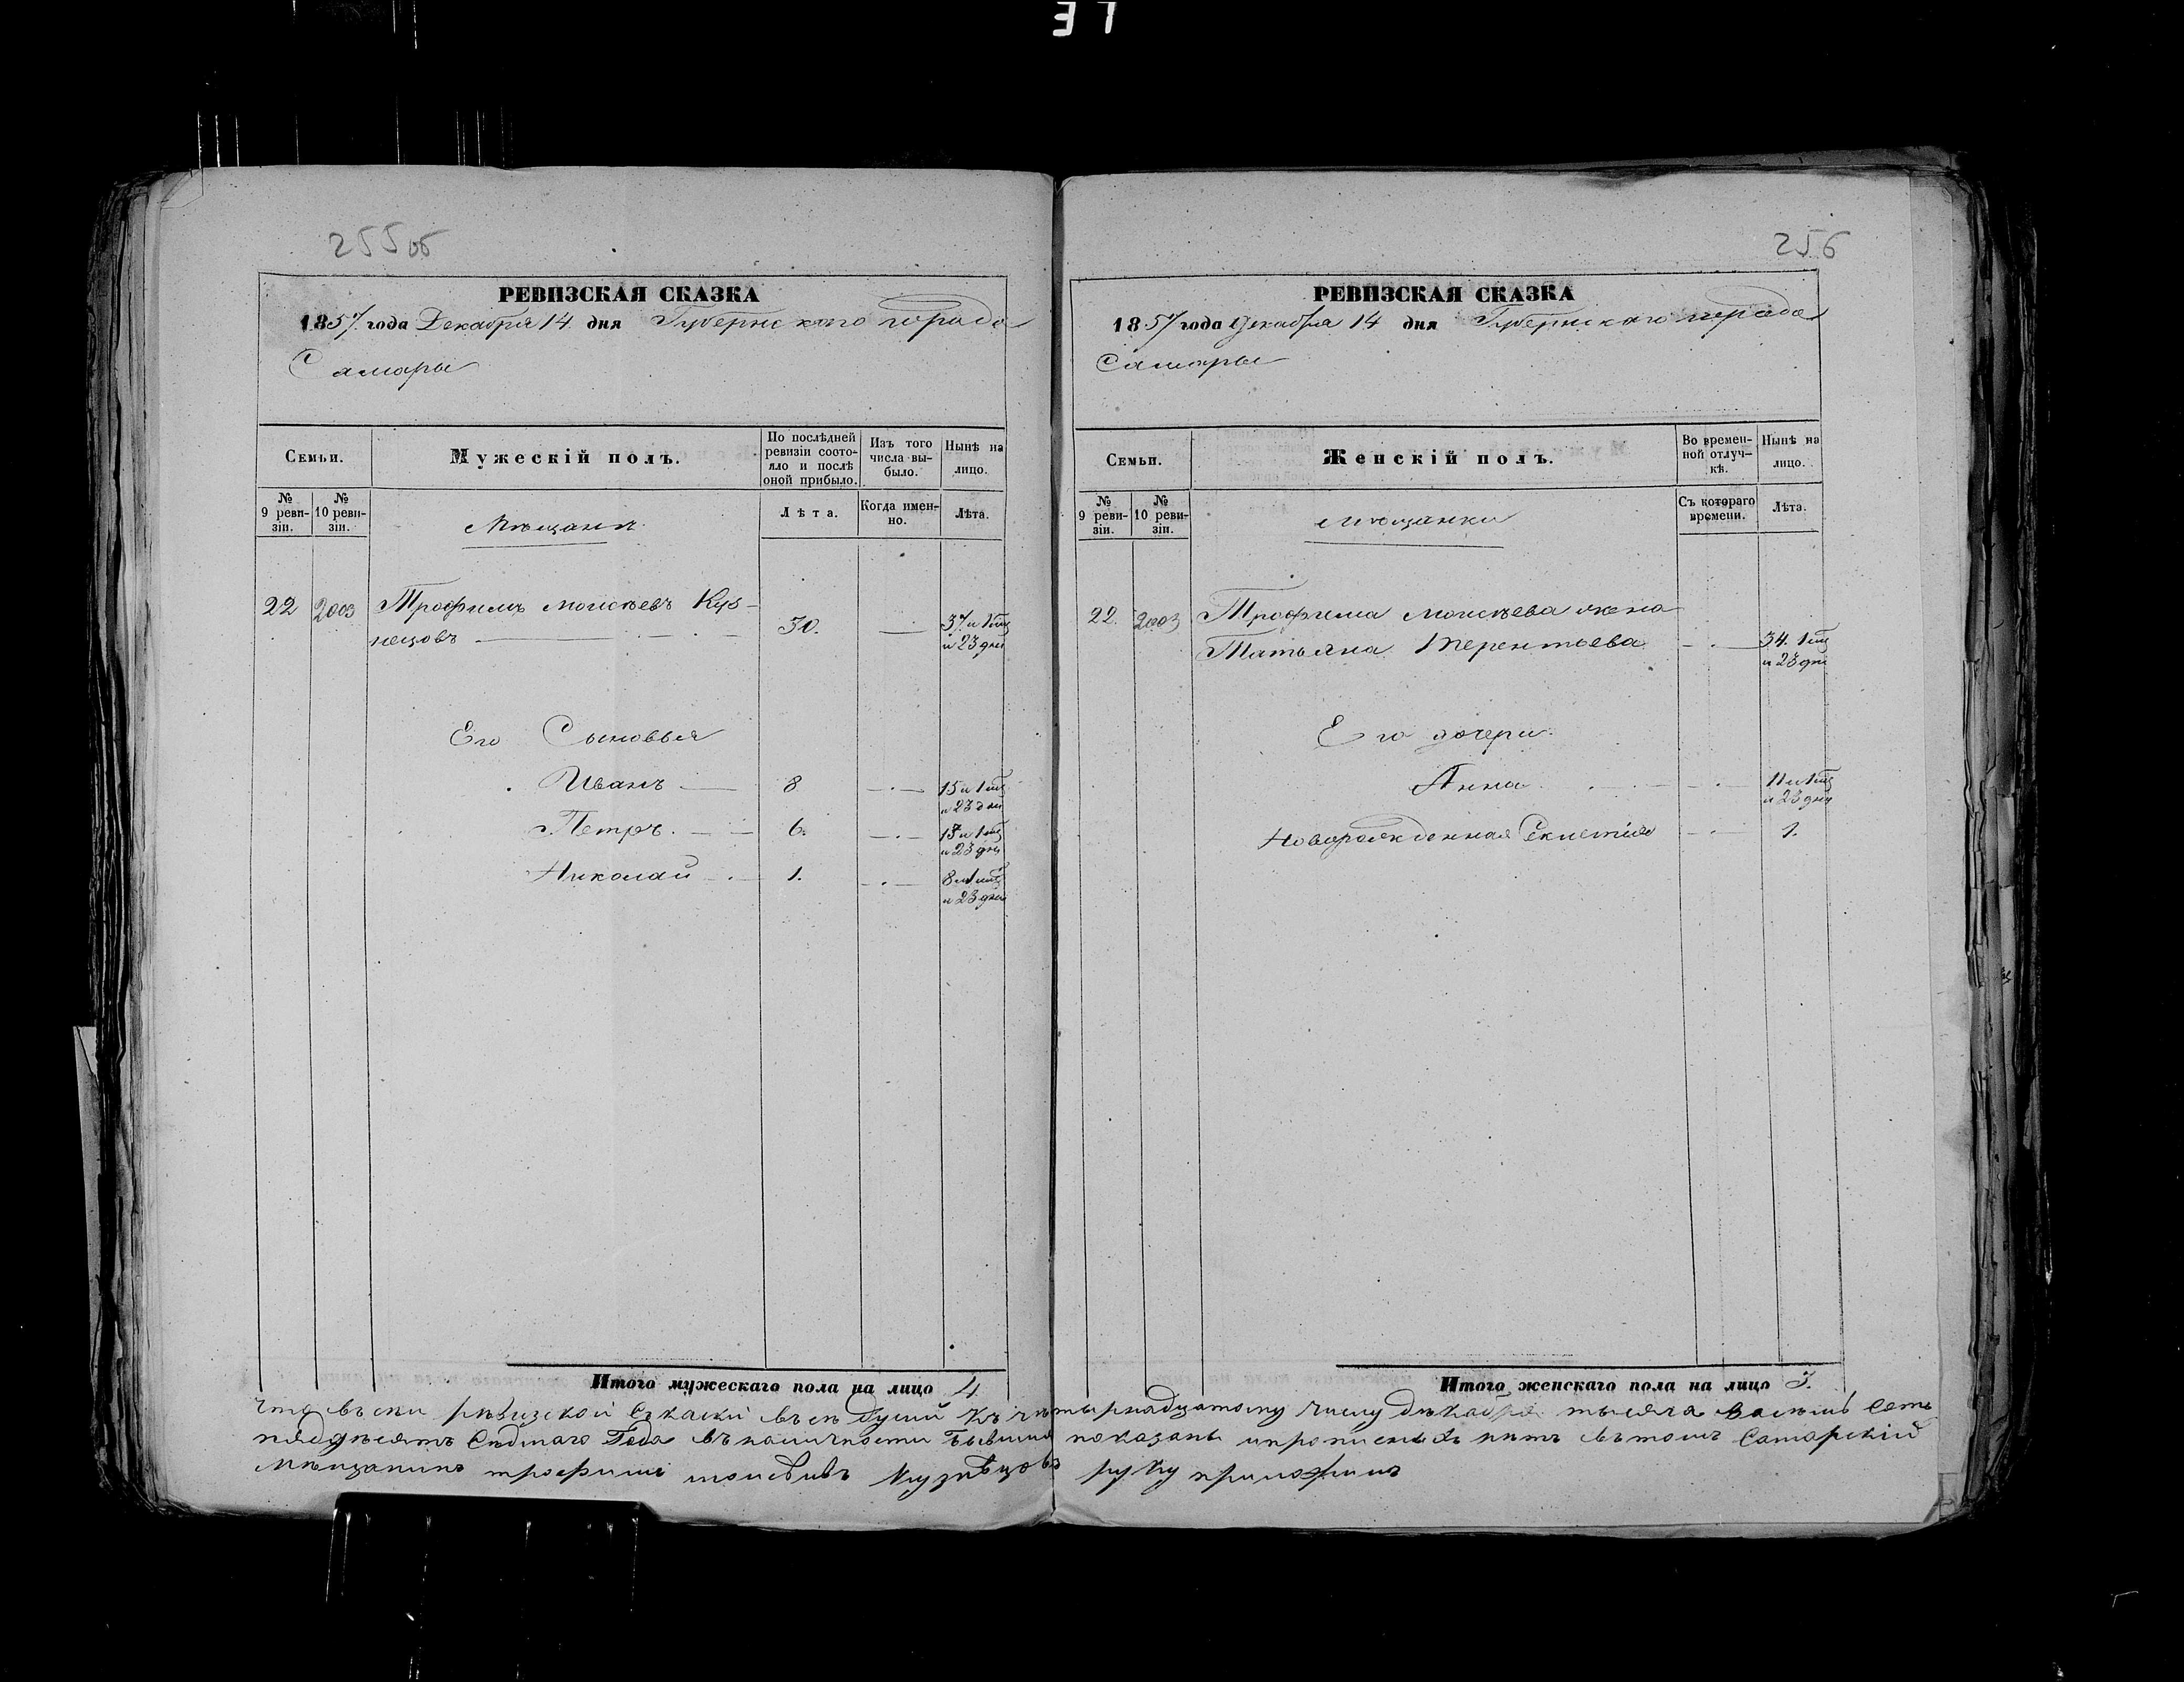 37
255об
РЕВИЗСКАЯ СКАЗКА
1857 года Декабря 14 дня Губернскаго города
Самары
Семьи.
Мужескій полъ.
По послѣдней ревизіи состояло и послѣ оной прибыло.
Изъ того числа выбыло.
Нынѣ на лицо.
№ 9 ревизіи.
№ 10 ревизіи.
Мѣщане
Лѣта.
Когда именно.
Лѣта.
22 2003 Трофимъ Моисѣевъ Куз-
нецовъ 30. 37 и 1 мц
и 23 дни
Его Сыновья
Иванъ 8 15 и 1 мц
и 23 дни
Петръ 6. 13 и 1 мц
и 23 дни
Николай 1. 8 и 1 мц
и 23 дни
Итого мужескаго пола на лицо 4
256
РЕВИЗСКАЯ СКАЗКА
1857 года Декабря 14 дня Губернскаго города
Самары
Семьи.
Женскій полъ.
Во временной отлучкѣ.
Нынѣ на лицо.
№ 9 ревизіи.
№ 10 ревизіи.
Мѣщанки
Съ котораго времени.
Лѣта.
22. 2003 Трофима Моисѣева жена
Татьяна Терентьева 34. 1 мц
и 23 дни
Его дочери
Анна 11 и 1 мц
и 23 дни
Новорожденная 1.
Итого женскаго пола на лицо 3.
что въ сѣи рѣвизской Скаски всѣ души Къ чѣтырнадцатому числу дѣкабря тысяча васѣмь Сотъ
пядѣсятъ Сѣдмаго Года въ наличности Бывшия показаны и прописныхъ нѣтъ въ томъ Самарскій
Мѣщанинъ трофимъ моисѣивъ Кузнѣцовъ руку приложилъ